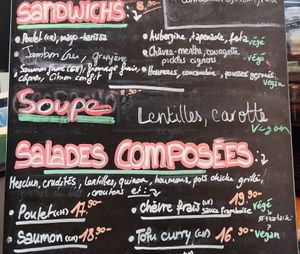 SANDWICHS
8.50
• Poulet (CH), mayo-harissa
• Aubergine, tapenade, feta végé
• Jambon cru, gruyère
• Chèvre-menthe, courgette végé
pickles oignons
Saumon fumé, fromage frais,
câpres, citron confit
• Houmous, concombre, pousses germées
vegan
8.90
Soupe
Lentilles, carotte
Vegan
SALADES COMPOSÉES :
Mesclun, crudités, lentilles, quinoa, houmous, pois chiche grillé,
croutons et :
• Poulet (CH) 17.90
• chèvre frais (CH) 19.90 végé
sauce framboise
• Saumon 18.90
• Tofu curry (CH) 16.90 vegan